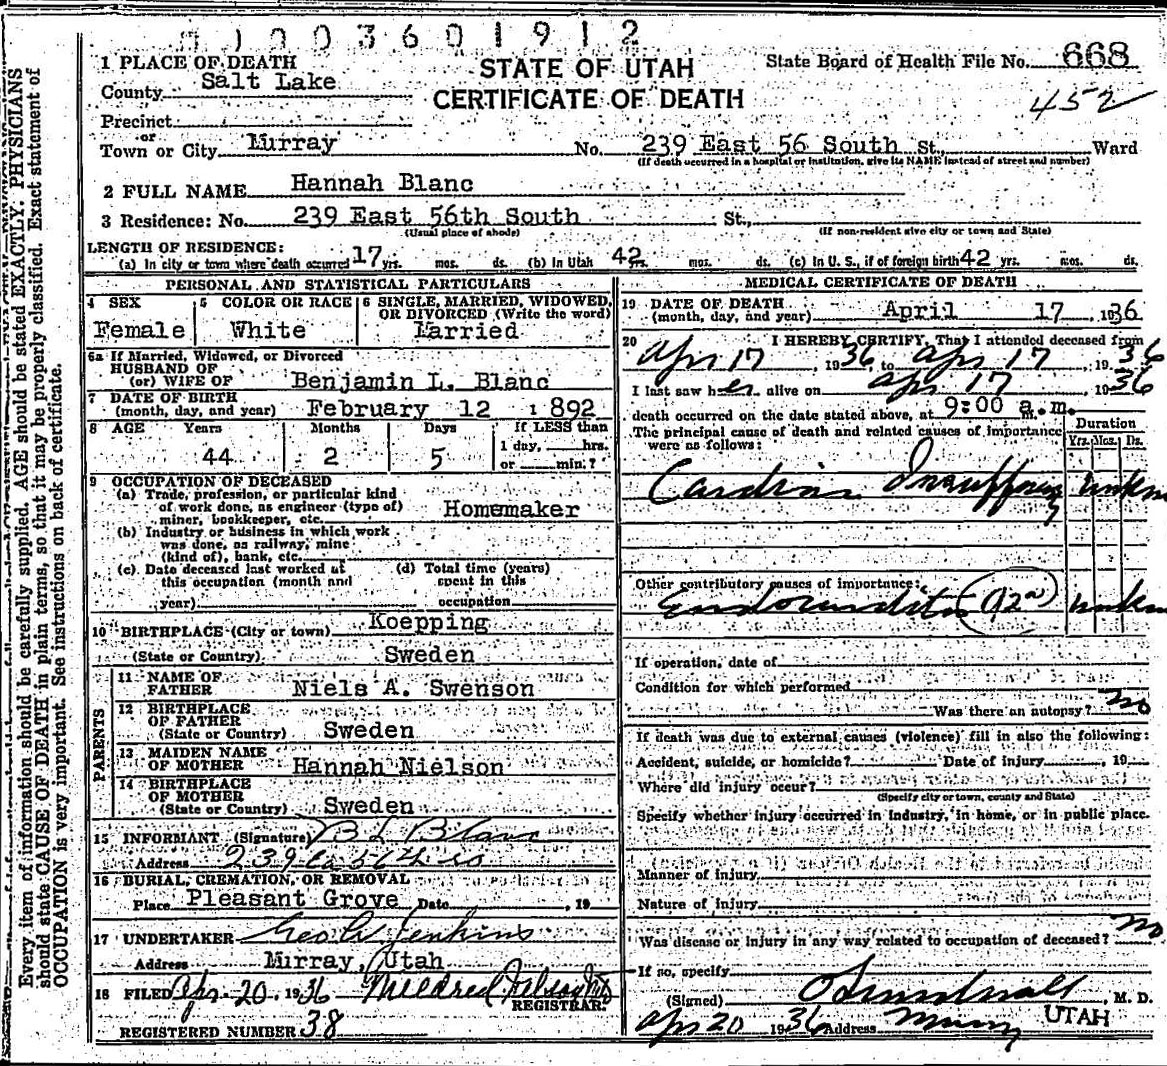 N1003601912
1 PLACE OF DEATH
STATE OF UTAH
State Board of Health File No. 668
County Salt Lake
CERTIFICATE OF DEATH
452
Precinct
or
Town or City Murray No. 239 East 56 South St., Ward
(If death occurred in a hospital or institution, give its NAME instead of street and number)
2 FULL NAME Hannah Blanc
3 Residence: No. 239 East 56th South St.,
(Usual place of abode) (If non-resident give city or town and State)
LENGTH OF RESIDENCE:
(a) In city or town where death occurred 17 yrs. mos. ds. (b) In Utah 42 yrs. mos. ds. (c) In U. S., if of foreign birth 42 yrs. mos. ds.
PERSONAL AND STATISTICAL PARTICULARS
4 SEX 5 COLOR OR RACE 6 SINGLE, MARRIED, WIDOWED, OR DIVORCED (Write the word)
Female White Married
6a If Married, Widowed, or Divorced
HUSBAND OF
(or) WIFE OF Benjamin L. Blanc
7 DATE OF BIRTH
(month, day, and year) February 12 1892
8 AGE Years Months Days If LESS than
1 day, hrs.
44 2 5 or min.?
9 OCCUPATION OF DECEASED
(a) Trade, profession, or particular kind
of work done, as engineer (type of)
miner, bookkeeper, etc. Homemaker
(b) Industry or business in which work
was done, as railway, mine
(kind of), bank, etc.
(c) Date deceased last worked at (d) Total time (years)
this occupation (month and spent in this
year) occupation
10 BIRTHPLACE (City or town) Koepping
(State or Country) Sweden
PARENTS
11 NAME OF
FATHER Niels A. Swenson
12 BIRTHPLACE
OF FATHER
(State or Country) Sweden
13 MAIDEN NAME
OF MOTHER Hannah Nielson
14 BIRTHPLACE
OF MOTHER
(State or Country) Sweden
15 INFORMANT (Signature) B L Blanc
Address 239 Ea 56th So
16 BURIAL, CREMATION, OR REMOVAL
Place Pleasant Grove Date , 19
17 UNDERTAKER Geo W Jenkins
Address Murray, Utah
18 FILED Apr. 20 1936 Mildred
REGISTRAR
REGISTERED NUMBER 38
MEDICAL CERTIFICATE OF DEATH
19 DATE OF DEATH
(month, day, and year) April 17 1936
20 I HEREBY CERTIFY, That I attended deceased from
Apr 17, 1936, to Apr 17, 1936
I last saw her alive on Apr 17, 1936
death occurred on the date stated above, at 9:00 a.m.
The principal cause of death and related causes of importance
were as follows:
Duration
Yrs. Mos. Ds.
Cardiac Insufficiency unkn
Other contributory causes of importance:
Endocarditis (92a) unkn
If operation, date of
Condition for which performed
Was there an autopsy? no
If death was due to external causes (violence) fill in also the following:
Accident, suicide, or homicide? Date of injury , 19
Where did injury occur?
(Specify city or town, county and State)
Specify whether injury occurred in industry, in home, or in public place.
Manner of injury
Nature of injury
Was disease or injury in any way related to occupation of deceased? no
If so, specify
(Signed) , M. D.
Apr 20 1936 Address Murray UTAH
Every item of information should be carefully supplied. AGE should be stated EXACTLY. PHYSICIANS
should state CAUSE OF DEATH in plain terms, so that it may be properly classified. Exact statement of
OCCUPATION is very important. See instructions on back of certificate.